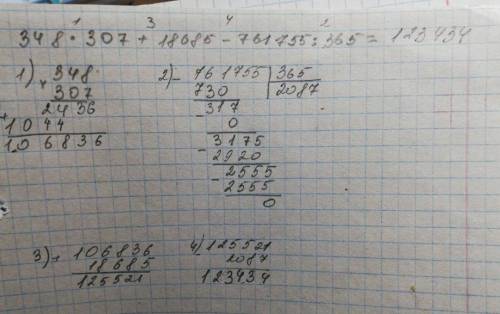 1 3 4 2
348 · 307 + 18685 - 761755 : 365 = 123434
1) 348
× 307
2436
+ 1044
106836
2) - 761755 | 365
730 | 2087
- 317
0
- 3175
2920
- 2555
2555
0
3) + 106836
18685
125521
4) - 125521
2087
123434